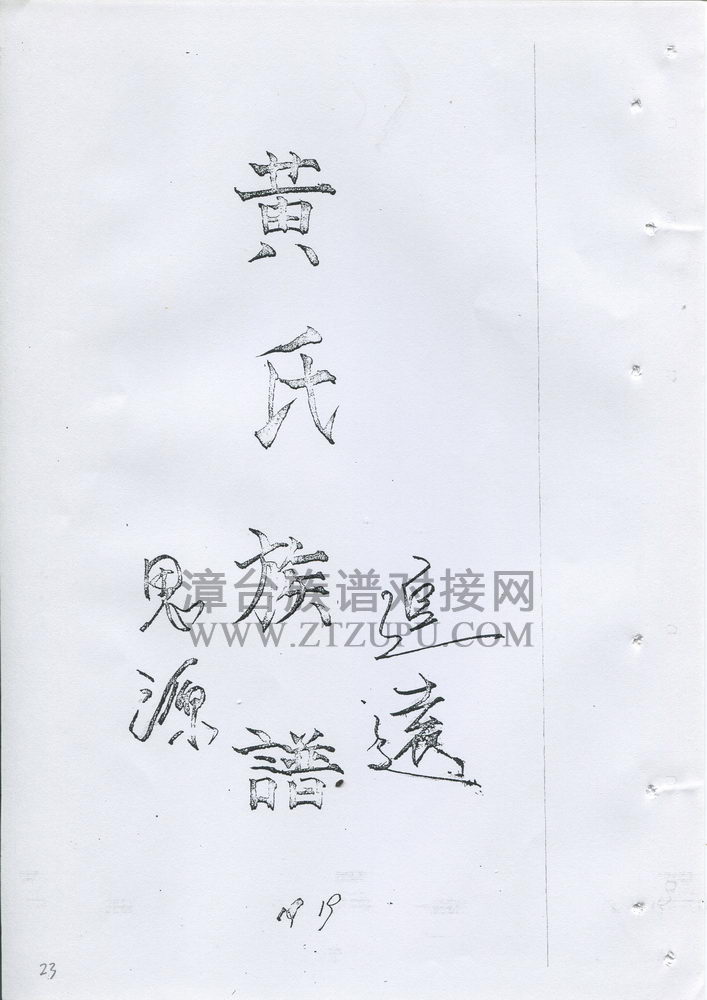 追遠
黃氏族譜
思源
漳台族谱对接网
WWW.ZTZUPU.COM
19
23